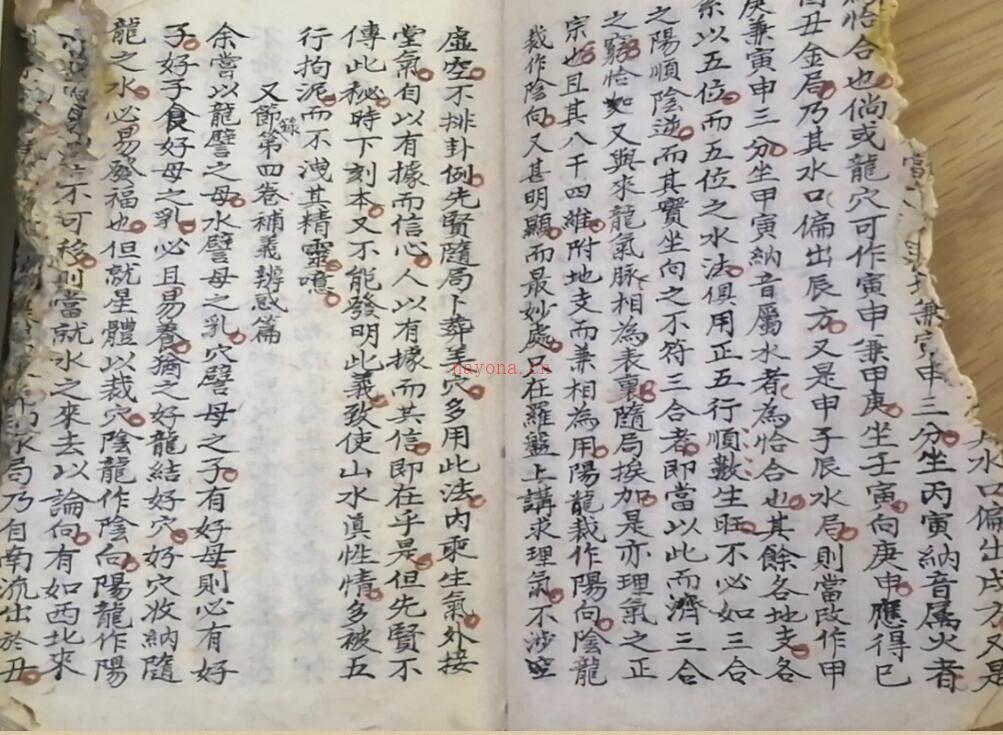 水口偏出戌方又是
兼寅申三分坐丙寅納音属火者
恰合也倘或龍穴可作寅申兼甲庚坐壬寅向庚申應得巳
酉丑金局乃其水口偏出辰方又是申子辰水局則當改作甲
庚兼寅申三分坐甲寅納音屬水者為恰合也其餘各地支各
系以五位而五位之水法俱用正五行順數生旺不必如三合
之陽順陰逆而其實坐向之不符三合者即當以此而濟三合
之窮恰如又與來龍氣脉相為表裏隨局挨加是亦理氣之正
宗也且其八干四維附地支而兼相為用陽龍裁作陽向陰龍
裁作陰向又甚明顯而最妙處只在羅盤上講求理氣不涉空
虛空不排卦例先賢隨局卜葬坐穴多用此法内乘生氣外接
堂氣自以有據而信心人以有據而其信即在乎是但先賢不
傳此秘時下刻本又不能發明此義致使山水真性情多被五
行拘泥而不洩其精靈噫
又節錄第四卷補義辨惑篇
余嘗以龍譬之母水譬母之乳穴譬母之子有好母則必有好
子好子食好母之乳必且易養猶之好龍結好穴好穴收納隨
龍之水必易發福也但就星體以裁穴陰龍作陰向陽龍作陽
不可移則當就水之來去以論向有如西北來
水局乃自南流出於丑
nayona.cn